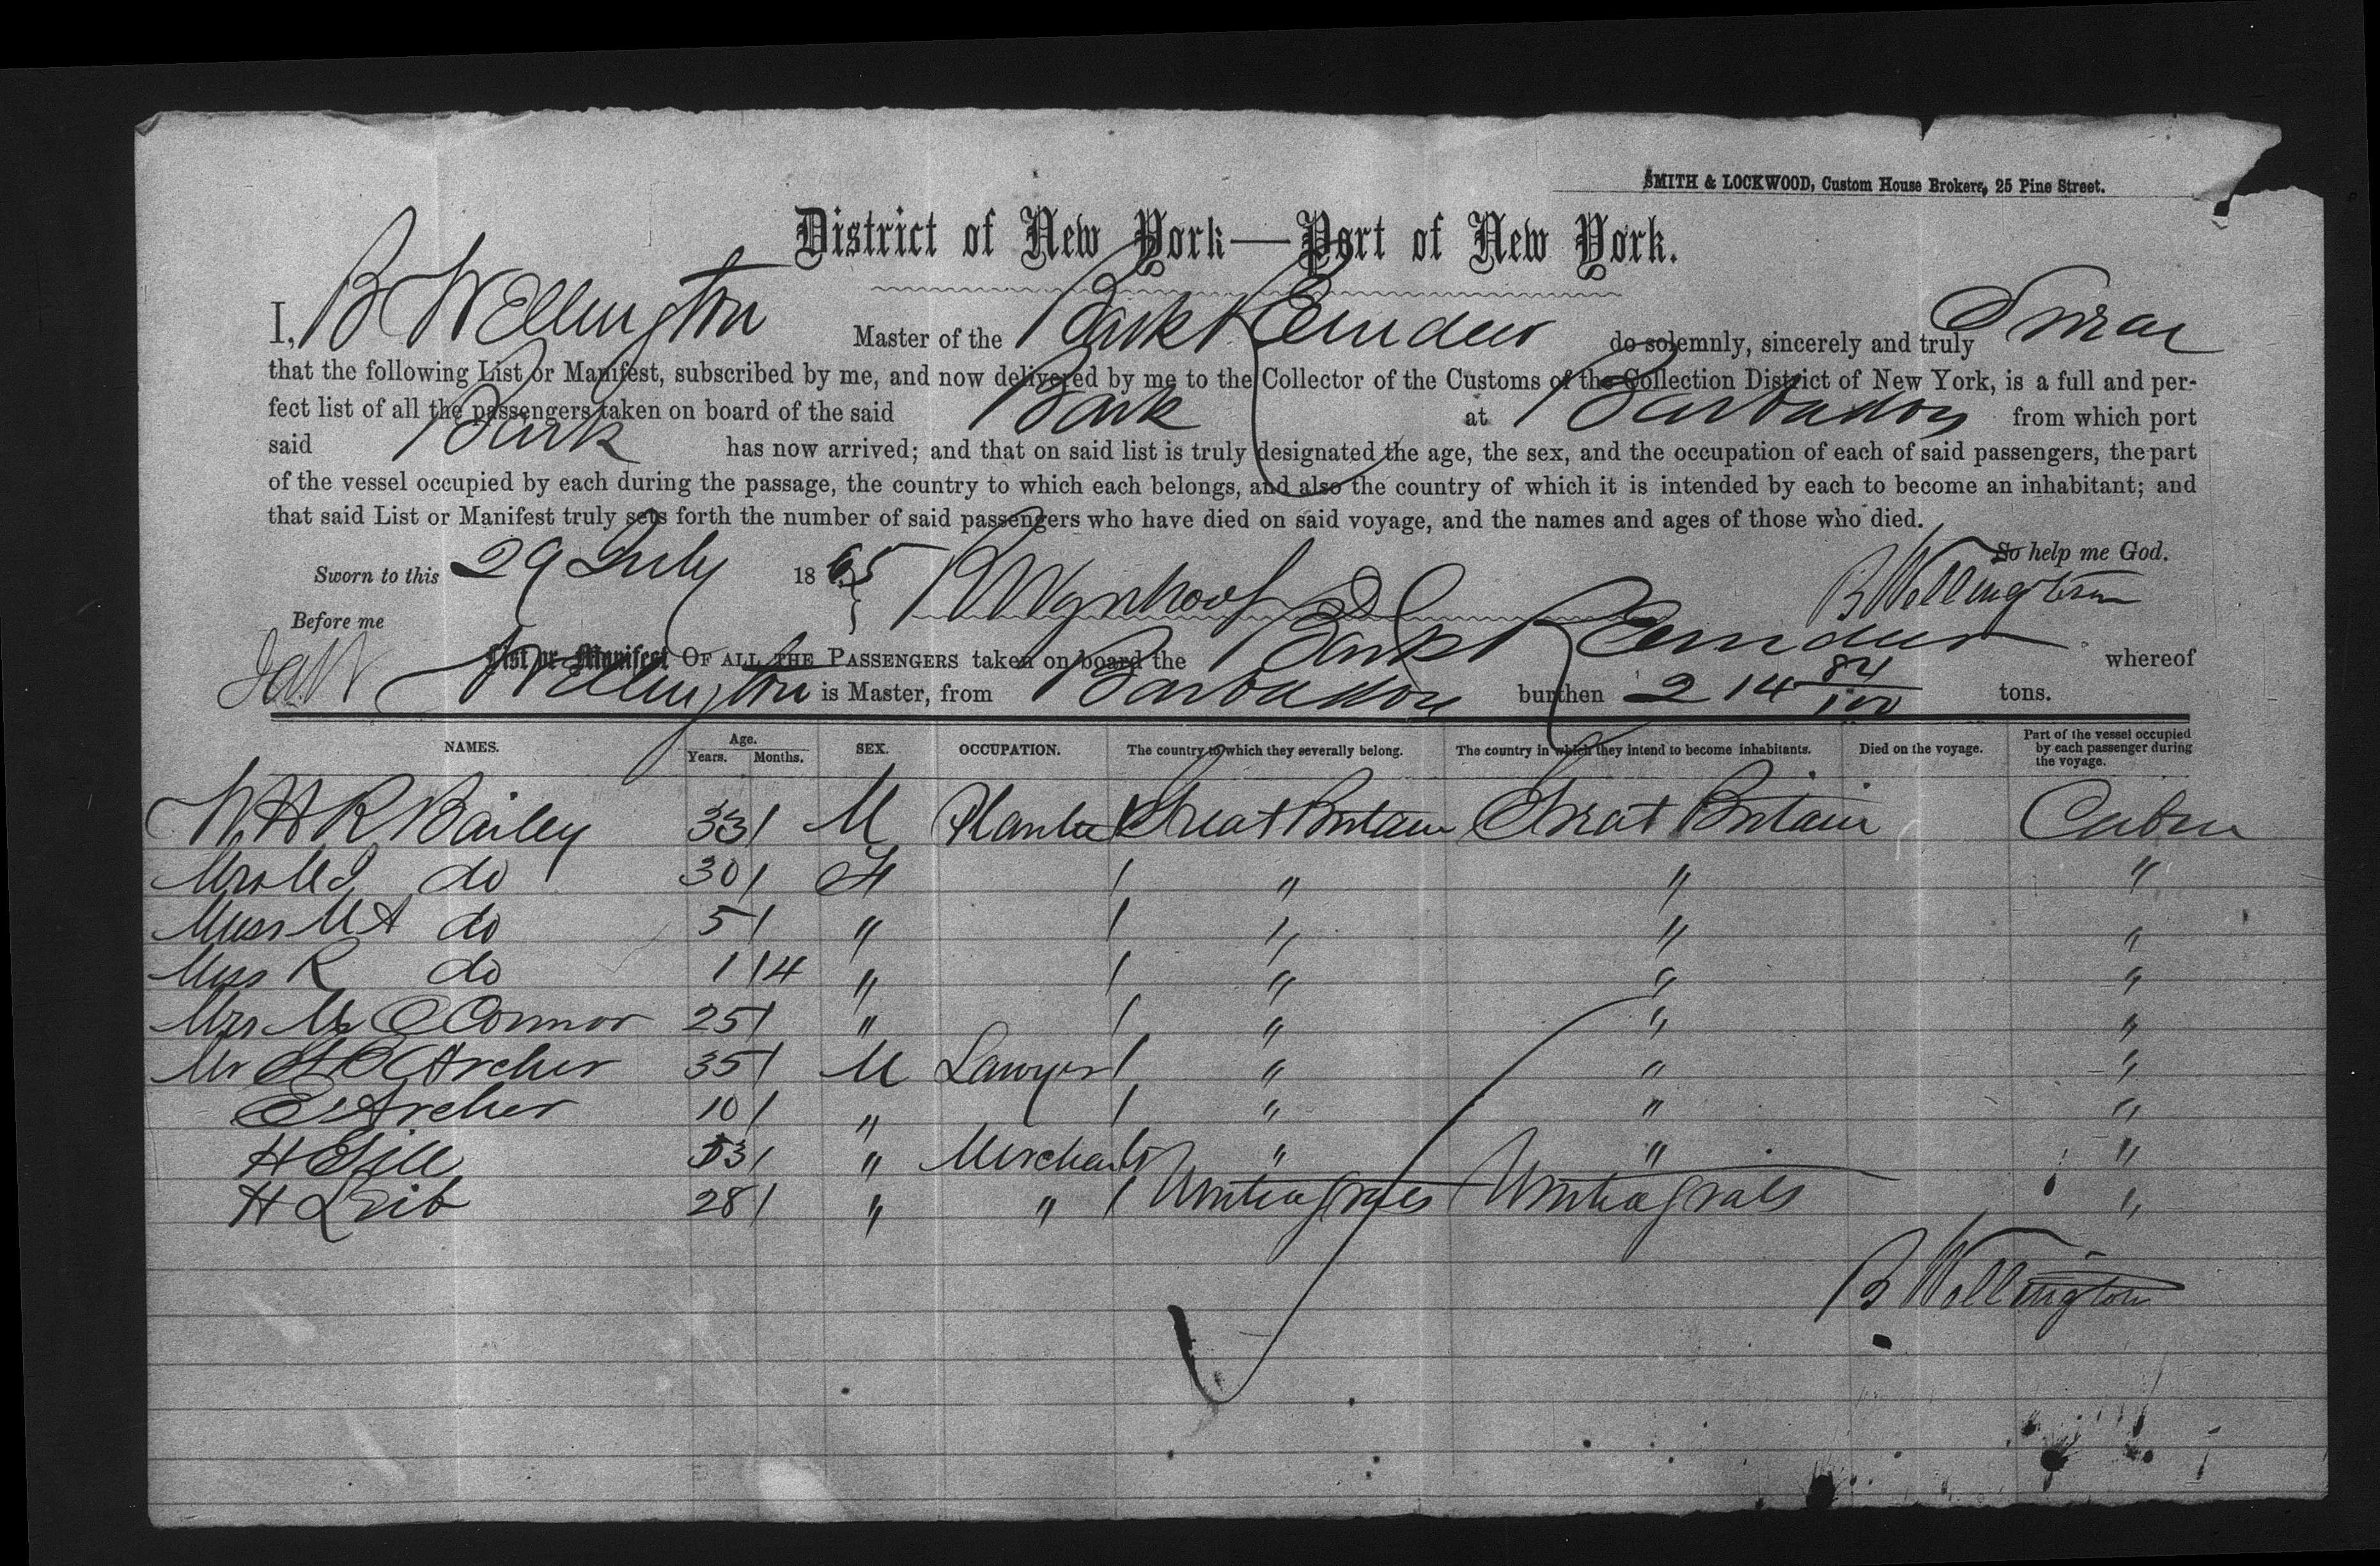 SMITH & LOCKWOOD, Custom House Brokers, 25 Pine Street.
District of New York—Port of New York.
I, B Wellington Master of the Bark Reindeer do solemnly, sincerely and truly Swear
that the following List or Manifest, subscribed by me, and now delivered by me to the Collector of the Customs of the Collection District of New York, is a full and per-
fect list of all the passengers taken on board of the said Bark at Barbadoes from which port
said Bark has now arrived; and that on said list is truly designated the age, the sex, and the occupation of each of said passengers, the part
of the vessel occupied by each during the passage, the country to which each belongs, and also the country of which it is intended by each to become an inhabitant; and
that said List or Manifest truly sets forth the number of said passengers who have died on said voyage, and the names and ages of those who died.
So help me God.
Sworn to this 29 July 1865 B Wellington
Before me
List or Manifest OF ALL THE PASSENGERS taken on board the Bark Reindeer whereof
Wellington is Master, from Barbadoes burthen 214 84/100 tons.
NAMES. Age. Years. Months. SEX. OCCUPATION. The country to which they severally belong. The country in which they intend to become inhabitants. Died on the voyage. Part of the vessel occupied by each passenger during the voyage.
W H R Bailey 33 / M Planter / Great Britain Great Britain Cabin
Mrs M J do 30 / F / " " "
Miss M A do 5 / " / " " "
Miss R do 1 / 4 " / " " "
Mrs M O Connor 25 / " / " " "
Mr Archer 35 / M Lawyer / " " "
E Archer 10 / " / " " "
H Gill 53 / " Merchant / " " "
H Leib 28 / " " / "
B Wellington